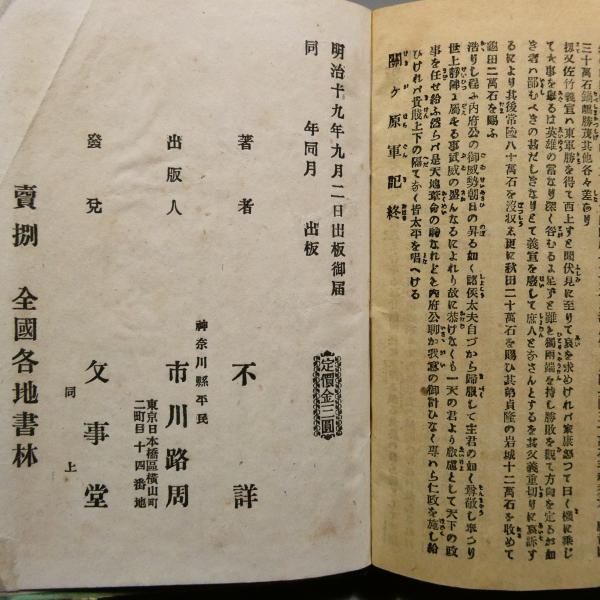 三十萬石鍋島勝茂其他各々差あり
扨又佐竹義宣ハ東軍勝を得て西上すと聞伏見に至りて哀を求めけれバ家康怒つて曰く機に乗じ
て大事を擧るは英雄の常なり深く咎むるに足らずと雖も獨兩端を持し勝敗を觀て方向を定る如
き者ハ鄙むべきの甚だしきなりとて義宣を廢して庶人となさんとするを其父義重切りに哀訴す
るにより其後常陸八十萬石を沒収し更に秋田二十萬石を賜ひ其弟貞隆の岩城十二萬石を收めて
龜田二萬石を賜ふ
浩りし程に內府公の御威勢朝日の昇る如く諸侯太夫自づから歸服して主君の如く尊敬し奉つり
世上靜謐に屬する事武威の盛んなるによれり故に恭けなくも一天の君より叡慮として天下の政
事を任せ給ふ然らバ是天地革命の時なれどと內府公聊か我意の御計ひなく專ハら仁政を施し給
ひけれバ貴賤上下の隔てなく皆太平を唱へける
關ヶ原軍記終
明治十九年九月二日出板御届
同 年同月 出板
定價金三圓
著者 不詳
神奈川縣平民
出版人 市川路周
東京日本橋區橫山町
二町目十四番地
發兌 文事堂
同上
賣捌 全國各地書林